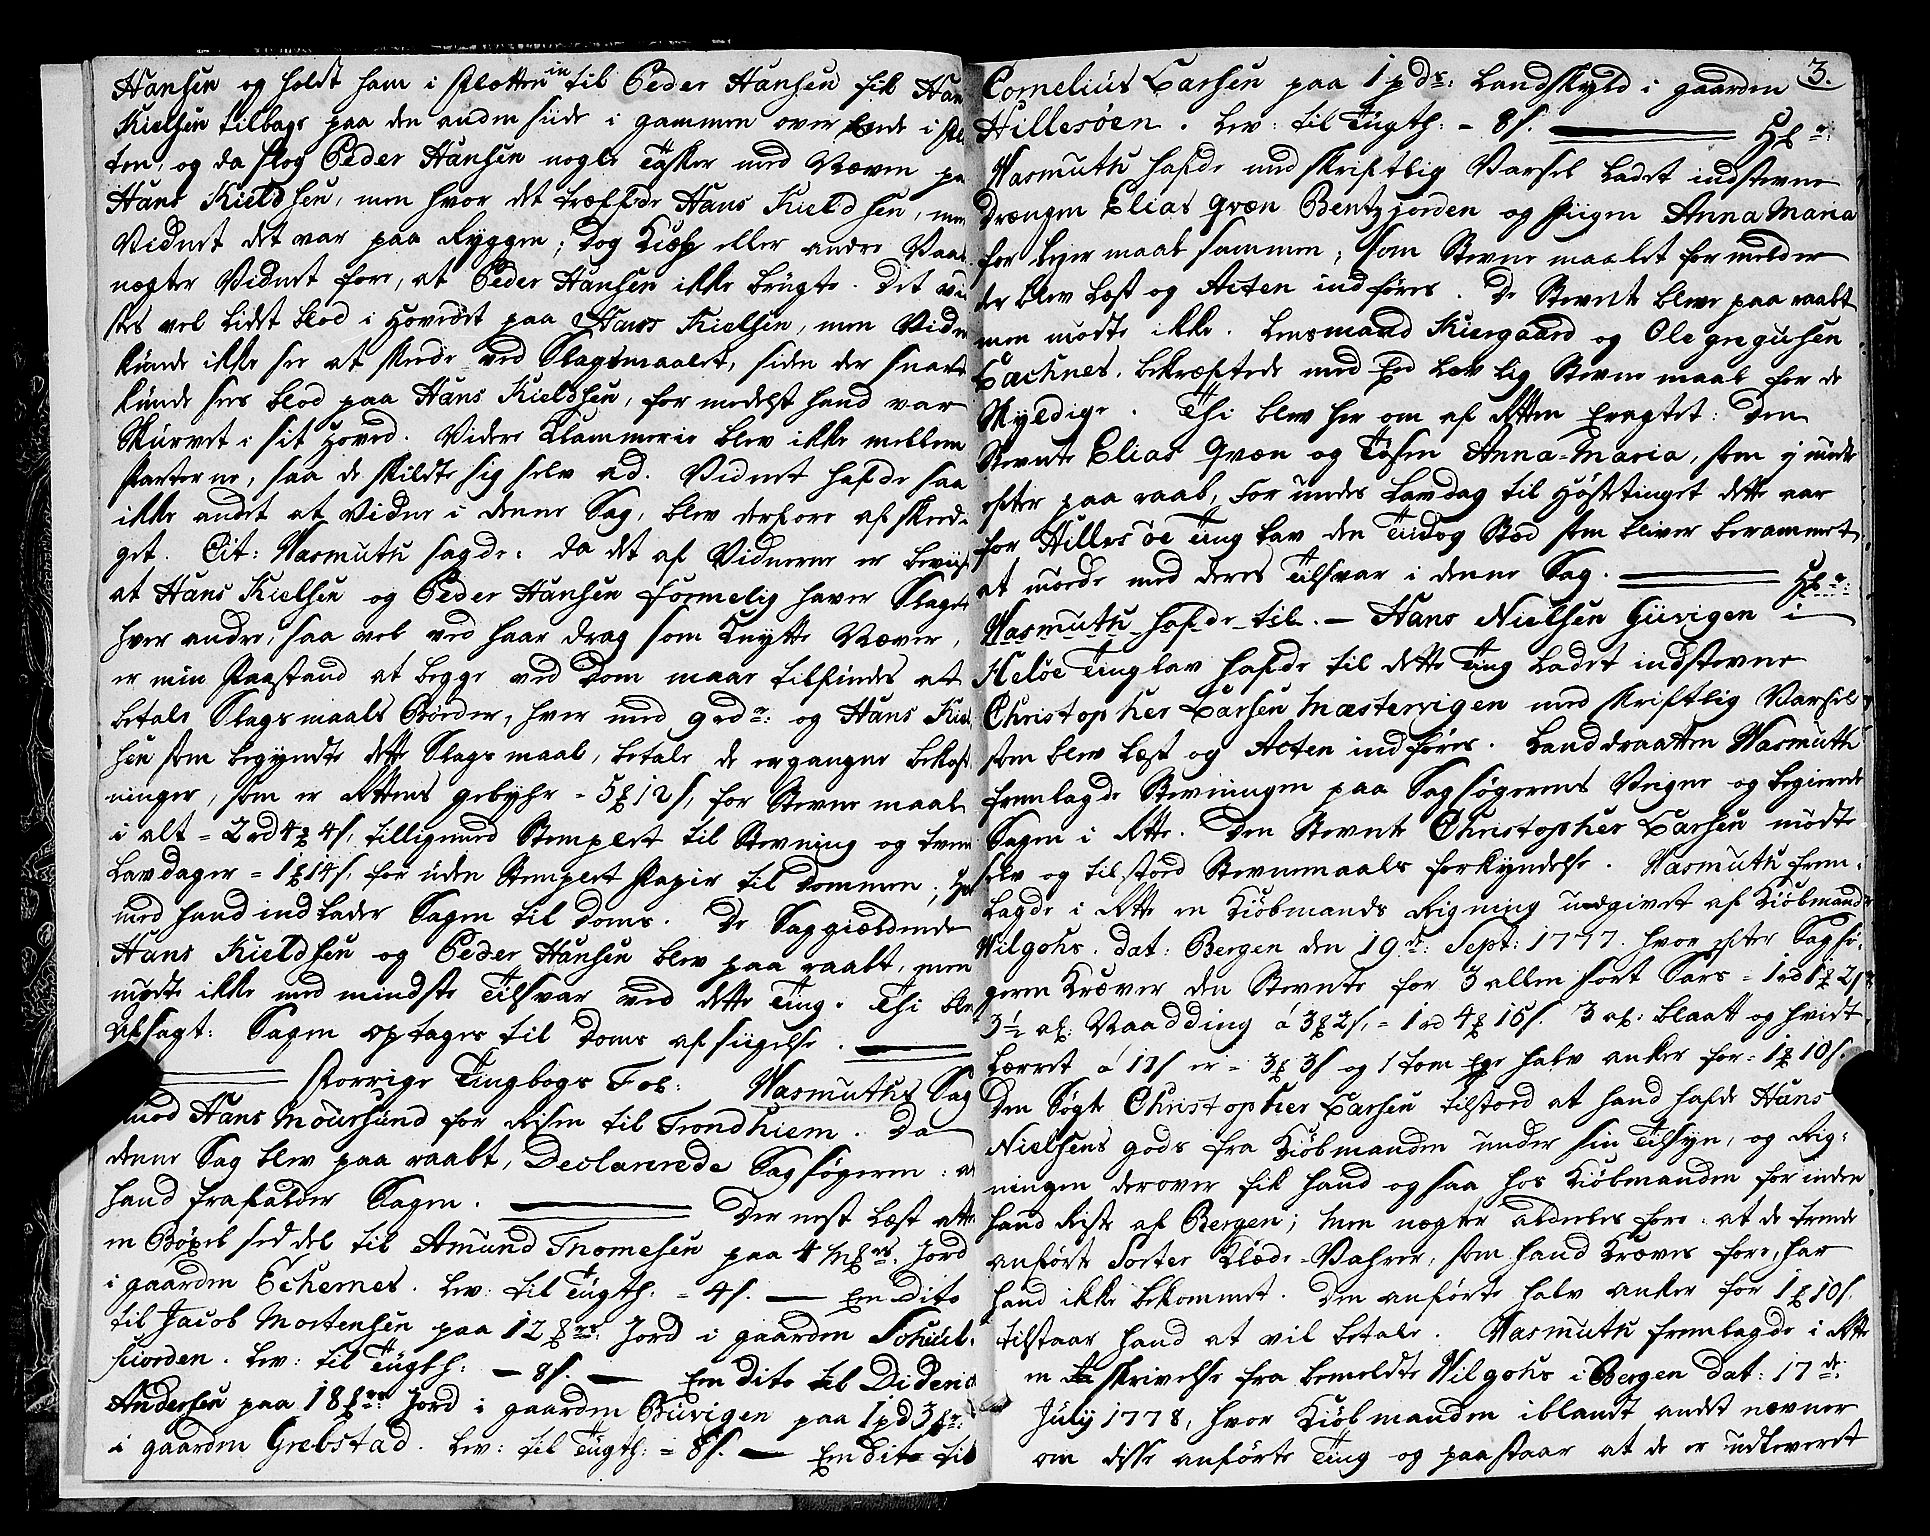 Hansen og holdt ham i Flotten in til Peder Hansen fik Han
Kielsen tilbage paa den anden siide i gammen over Ende i flo
ten, og da slog Peder Hansen nogle Tasker med Næven pa
Hans Kieldsen, men hvor det træffede Hans Kieldsen, men
Vidnet det var paa Ryggen; dog Kiæp eller andre Vaab
nægter Vidnet fore, at Peder Hansen ikke brugte. Det vii
stes vel lidet blod i Hovedet paa Hans Kielsen, men Vidn
kunde ikke see at skede ved Slagsmaalet, siden der snart
kunde sees blod paa Hans Kieldsen, formedelst hand var
Skurvet i sit Hoved. Videre Klammerie blev ikke mellem
Parterne, saa de skildte sig selv ad. Vidnet hafde saa
ikke andet at vidne i denne Sag, blev derfore afskedi-
get. Cit: Wasmuth sagde: da det af Vidnerne er beviist
at Hans Kielsen og Peder Hansen formelig haver Slaget
hver andre, saa vel ved haar drag som knytte Næver,
er min Paastand at begge ved Dom maae tilfindes at
betale Slagsmaals Bøder, hver med 9 rdr: og Hans Kiel
sen som begyndte dette Slagsmaal, betale de ergangne bekost
ninger, som er Rettens gebyhr = 5 ℔ 12 s, for Stevnemaal
i alt = 2 rd 4 ℔ 4 s, tilligemed Stemplet til Stevning og tvende
Lavdager = 1 ℔ 14 s, for uden Stemplet Papir til Dommen; Her
med hand indlader Sagen til Doms. De Saggiældende
Hans Kieldsen og Peder Hansen blev paa raabt, men
mødte ikke med mindste Tilsvar ved dette Ting. Thi blev
afsagt: Sagen optages til Doms afsiigelse.
Forrige Tingbogs Fol: Wasmuths Sag
mod Hans Moursund for Reisen til Trondhiem. Da
denne Sag blev paa raabt, Declarerede Sagsøgeren: at
hand frafalder Sagen. Der nest Læst atte
en Bøxelseddel til Amund Thomesen paa 4 Mkr: Jord
i gaarden Echernes. Lev: til Tugth: = 4 s. En dito
til Jacob Mortensen paa 12 ℔r: Jord i gaarden Schul-
fiorden. Lev: til Tugth: - 8 s. En dito til Dideric
Andersen paa 18 ℔r: Jord i gaarden Buvigen paa 1 pd 3 ℔r:
i gaarden Grebstad. Lev: til Tugth: = 8 s. En dito til
3.
Cornelius Larsen paa 1 pdr: Landskyld i gaarden
Hillesøen. Lev: til Tugth: = 8 s. Hl r:
Wasmuth hafde med skriftlig Varsel ladet indstevne
Drængen Elias Qvæn Bentzjorden og Piigen Anna Maria
for Leyermaal sammen, som Stevnemaalet formelder
der blev Læst og Acten indføres. De Stevnte bleve paa raabt
men mødte ikke. Lensmand Kiergaard og Ole gregusen
Lachnes, bekræftede med Eed lovlig Stevnemaal for de
Skyldige. Thi blev her om af Retten Eragtet: Den
Stevnte Elias Qvæn og Tøsen Anna-Maria, som ej møder
efter paa raab, Forundes Lavdag til Høsttinget dette aar
for Hillesøe Ting lav den Tiid og Sted som bliver berammet
at møde med deres Tilsvar i denne Sag. Hl r:
Wasmuth hafde til. - Hans Nielsen Giivigen i
Helöe Tinglav hafde til dette Ting ladet indstevne
Christopher Larsen Mæstervigen med skriftlig Varsel
som blev Læst og Acten indføres. Landdraatten Wasmuth
fremlagde Stevningen paa Sagsøgerens Vegne og begierede
Sagen i Rette. Den Stevnte Christopher Larsen mødte
selv og tilstoed Stevnemaals forkyndelse. Wasmuth frem-
lagde i Rette en Kiöbmands Rigning udgivet af Kiöbmand
Wilgohs. dat: Bergen den 19de: Sept: 1777. hvor efter Sagsø-
geren kræver den Stevnte for 3 allen sort Sars = 1 rd 1 ℔ 2 s
3½ al: Vaadding á 3 ℔ 2 s, = 1 rd 4 ℔ 15 s. 3 al: blaatt og hvidt
lærret á 17 s er = 3 ℔ 3 s og 1 tom Ege halv anker for = 1 ℔ 10 s.
Den Søgte Christopher Larsen tilstoed at hand hafde Hans
Nielsens gods fra Kiöbmanden under sin Tilsyn, og Rig-
ningen derover fik hand og saa hos Kiöbmanden for inden
hand Reiste af Bergen; Men nægter aldeeles fore: at de trende
anførte Sorter Klæde-Vahrer, som hand kræves fore, har
hand ikke bekommet. Den anførte halv anker for 1 ℔ 10 s.
tilstaar hand at vil betale. Wasmuth fremlagde i Rette
en skrivelse fra bemeldte Wilgohs i Bergen dat: 17de:
July 1778, hvor Kiöbmanden iblandt andet nævner
om disse anførte Ting og paastaar at de er udleveret